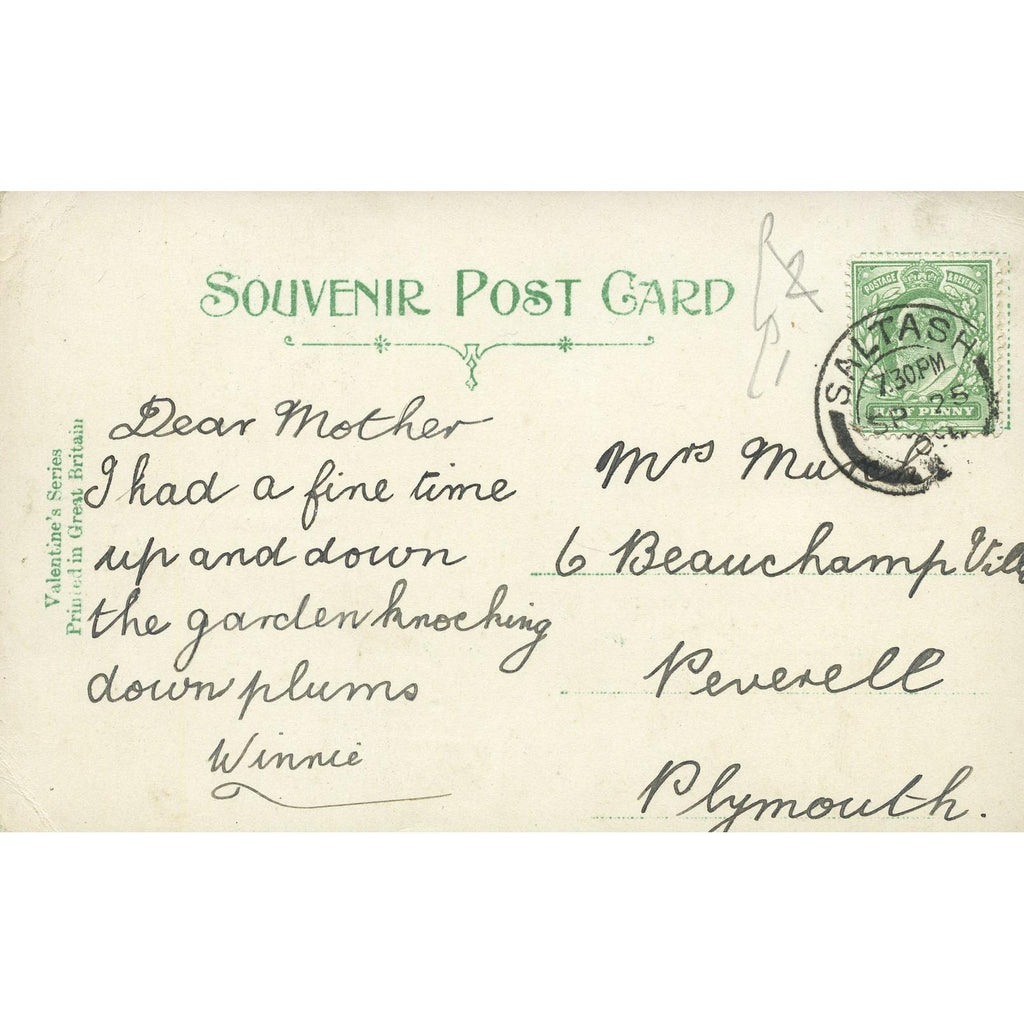 SOUVENIR POST CARD
Valentine's Series
Printed in Great Britain
POSTAGE & REVENUE
HALF PENNY
SALTASH
7.30.PM
SP 25
Dear Mother
I had a fine time
up and down
the garden knocking
down plums
Winnie
Mrs
6 Beauchamp Vill
Peverell
Plymouth.